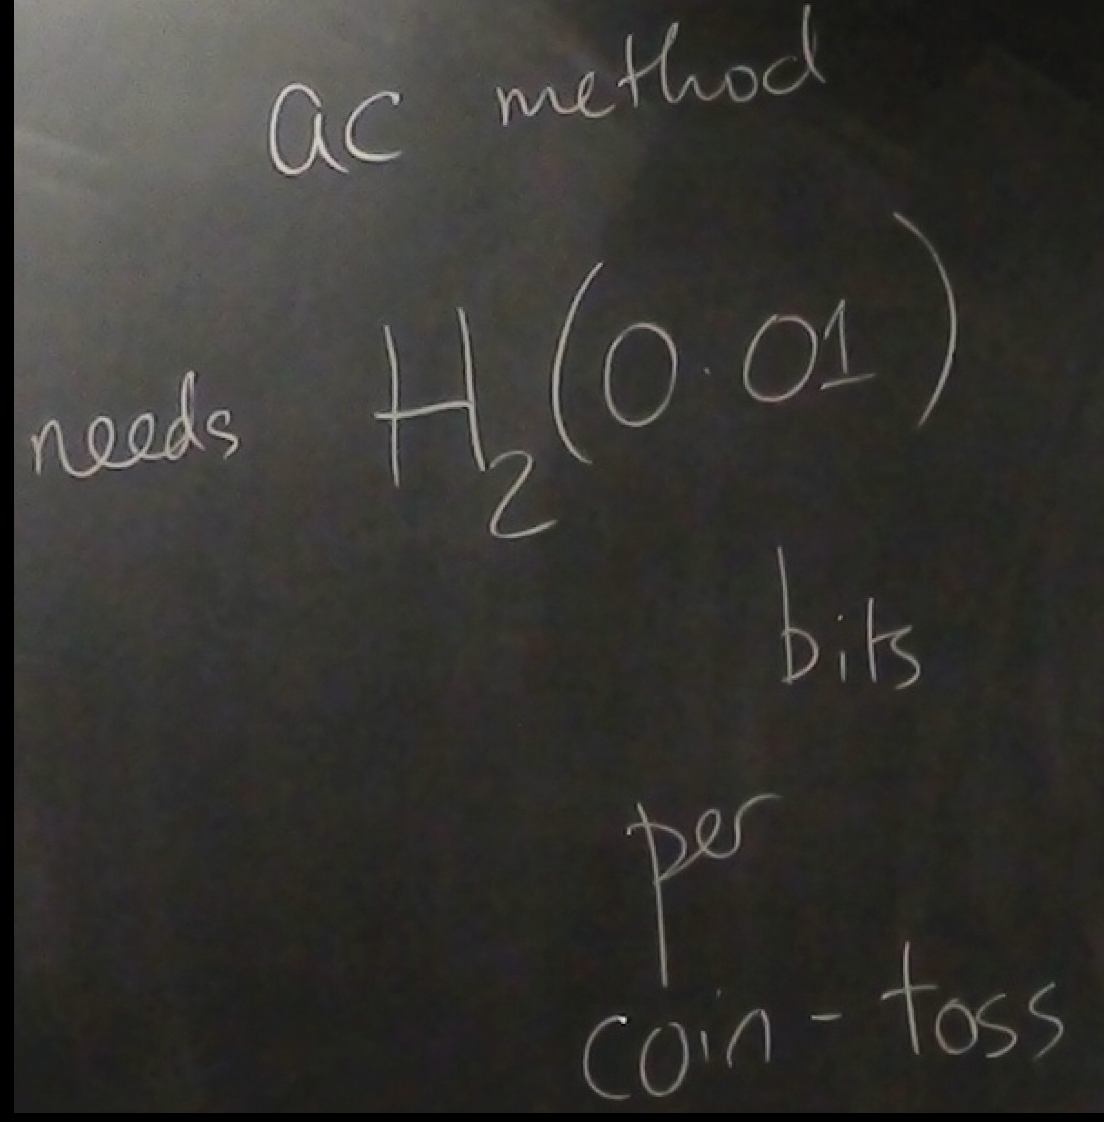 ac method
needs H₂(0.01)
bits
per
coin-toss